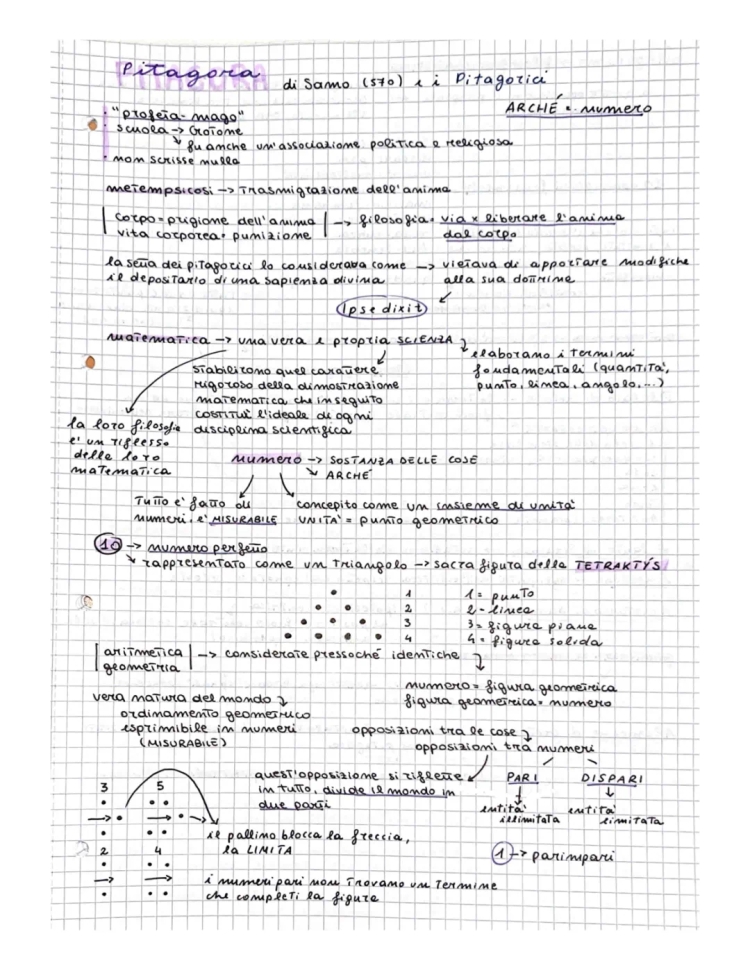 Pitagora di Samo (570) e i Pitagorici
ARCHÉ = numero
• "profeta-mago"
• scuola → Crotone
↘ fu anche un'associazione politica e religiosa
• non scrisse nulla
metempsicosi → Trasmigrazione dell'anima
corpo = prigione dell'anima → filosofia = via x liberare l'anima
vita corporea = punizione dal corpo
la setta dei pitagorici lo considerava come → vietava di apportare modifiche
il depositario di una sapienza divina alla sua dottrina
Ipse dixit
matematica → una vera e propria SCIENZA
elaborano i termini
stabilirono quel carattere fondamentali (quantità,
rigoroso della dimostrazione punto, linea, angolo, ...)
matematica che in seguito
costituì l'ideale di ogni
la loro filosofia disciplina scientifica
e' un riflesso
della loro numero → SOSTANZA DELLE COSE
matematica ↘ ARCHÉ
Tutto e' fatto di concepito come un insieme di unità
numeri, e' MISURABILE UNITA' = punto geometrico
10 → numero perfetto
↘ rappresentato come un triangolo → sacra figura della TETRAKTÝS
1 1 = punto
2 2 = linea
3 3 = figura piana
4 4 = figura solida
aritmetica → considerate pressoché identiche
geometria
numero = figura geometrica
vera natura del mondo figura geometrica = numero
ordinamento geometrico
esprimibile in numeri opposizioni tra le cose
(MISURABILE) opposizioni tra numeri
quest'opposizione si riflette PARI DISPARI
3 5 in tutto, divide il mondo in
due parti entità entità
illimitata limitata
il pallino blocca la freccia,
2 4 la LIMITA 1 → parimpari
i numeri pari non trovano un termine
che completi la figura